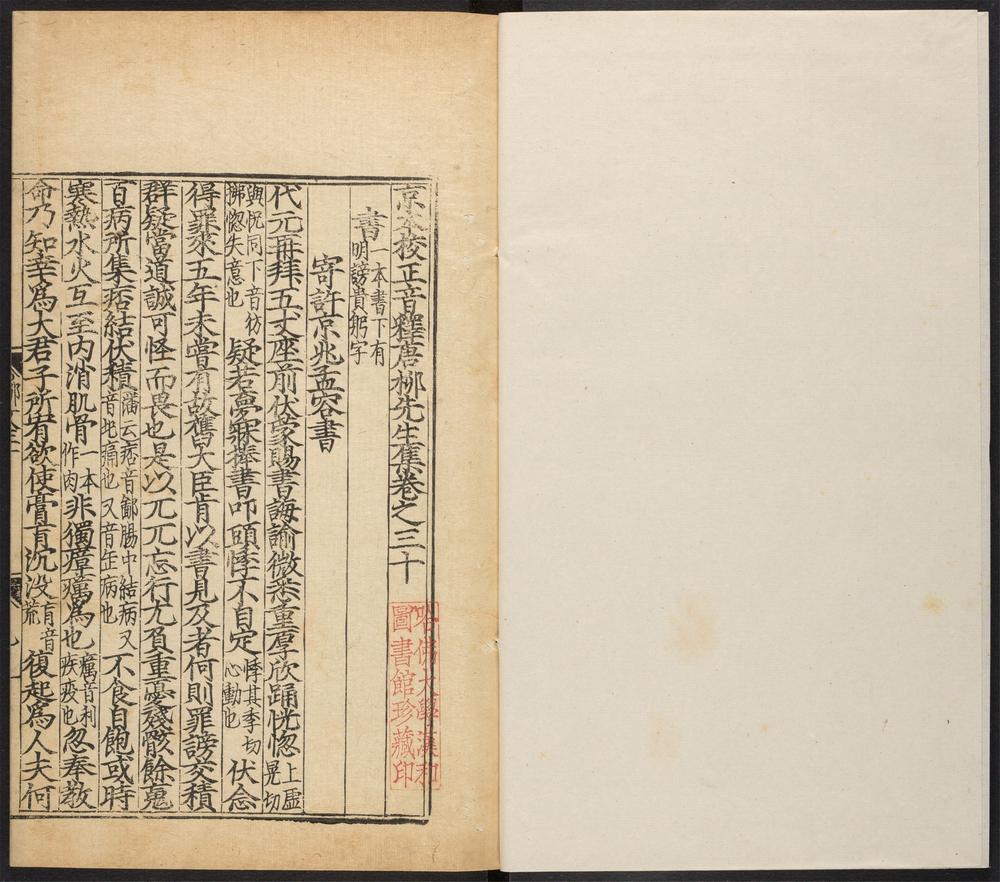 京本校正音釋唐柳先生集卷之三十
書一本書下有明謗責躬字
寄許京兆孟容書
代元再拜五丈座前伏蒙賜書誨諭微悉重厚欣踊恍惚上虛晃切
與怳同下音彷彿惚失意也疑若夢寐捧書叩頭悸不自定悸其季切心動也伏念
得罪來五年未嘗有故舊大臣肯以書見及者何則罪謗交積
群疑當道誠可怪而畏也是以兀兀忘行尤負重憂殘骸餘䰟
百病所集痞結伏積潘云痞音鄙腸中結病又音圮痛也又音缶病也不食自飽或時
寒熱水火互至內消肌骨一本作肉非獨瘴癘為也癘音利疾疫也忽奉教
命乃知幸為大君子所宥欲使膏肓沉没肓音荒復起為人夫何
哈佛大學漢和
圖書館珍藏印